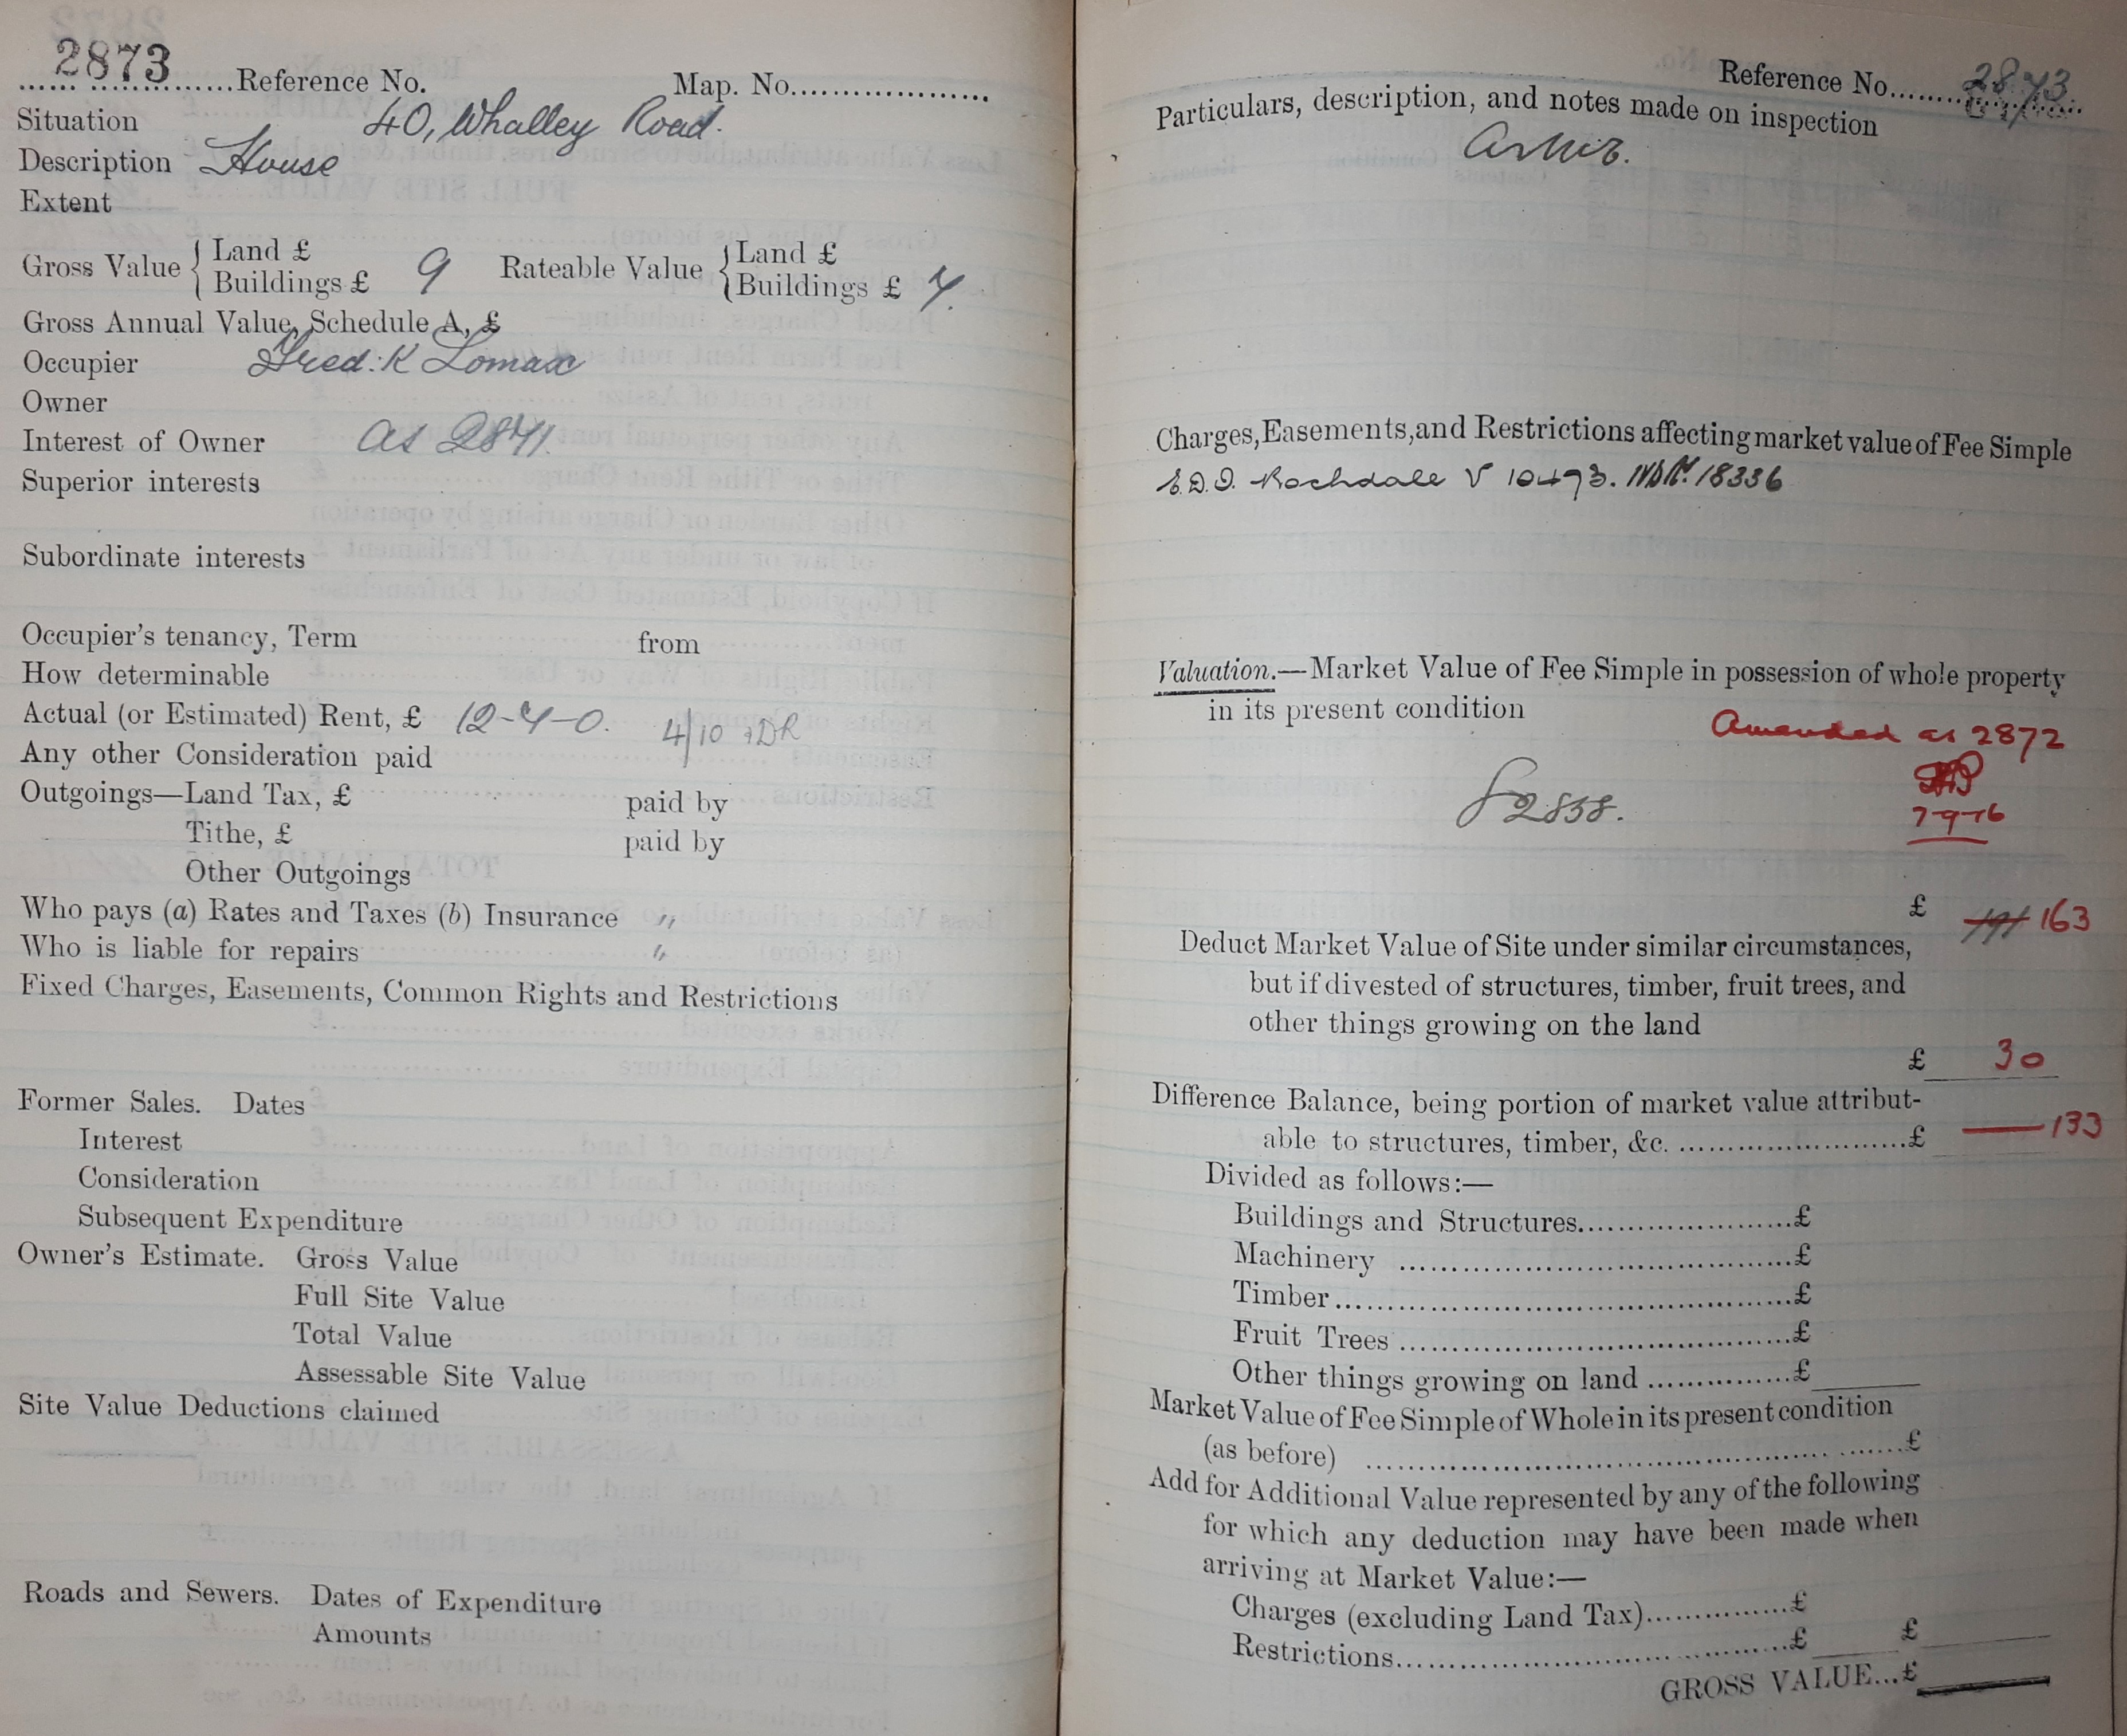 2873 Reference No. Map. No.
Situation 40, Whalley Road.
Description House
Extent
Gross Value { Land £
Buildings £ 9 Rateable Value { Land £
Buildings £ 7.
Gross Annual Value, Schedule A, £
Occupier Fred: K Lomax
Owner
Interest of Owner as 2871.
Superior interests
Subordinate interests
Occupier's tenancy, Term from
How determinable
Actual (or Estimated) Rent, £ 12-7-0. 4/10
Any other Consideration paid
Outgoings—Land Tax, £ paid by
Tithe, £ paid by
Other Outgoings
Who pays (a) Rates and Taxes (b) Insurance "
Who is liable for repairs "
Fixed Charges, Easements, Common Rights and Restrictions
Former Sales. Dates
Interest
Consideration
Subsequent Expenditure
Owner's Estimate. Gross Value
Full Site Value
Total Value
Assessable Site Value
Site Value Deductions claimed
Roads and Sewers. Dates of Expenditure
Amounts
Reference No. 2873
Particulars, description, and notes made on inspection
Charges, Easements, and Restrictions affecting market value of Fee Simple
E.D.D. Rochdale V 10473. 18336
Valuation.—Market Value of Fee Simple in possession of whole property
in its present condition
Amended as 2872
7-9-16
2858.
£ 191 163
Deduct Market Value of Site under similar circumstances,
but if divested of structures, timber, fruit trees, and
other things growing on the land
£ 30
Difference Balance, being portion of market value attribut-
able to structures, timber, &c. £ 133
Divided as follows:—
Buildings and Structures £
Machinery £
Timber £
Fruit Trees £
Other things growing on land £
Market Value of Fee Simple of Whole in its present condition
(as before) £
Add for Additional Value represented by any of the following
for which any deduction may have been made when
arriving at Market Value:—
Charges (excluding Land Tax) £
Restrictions £ £
GROSS VALUE...£